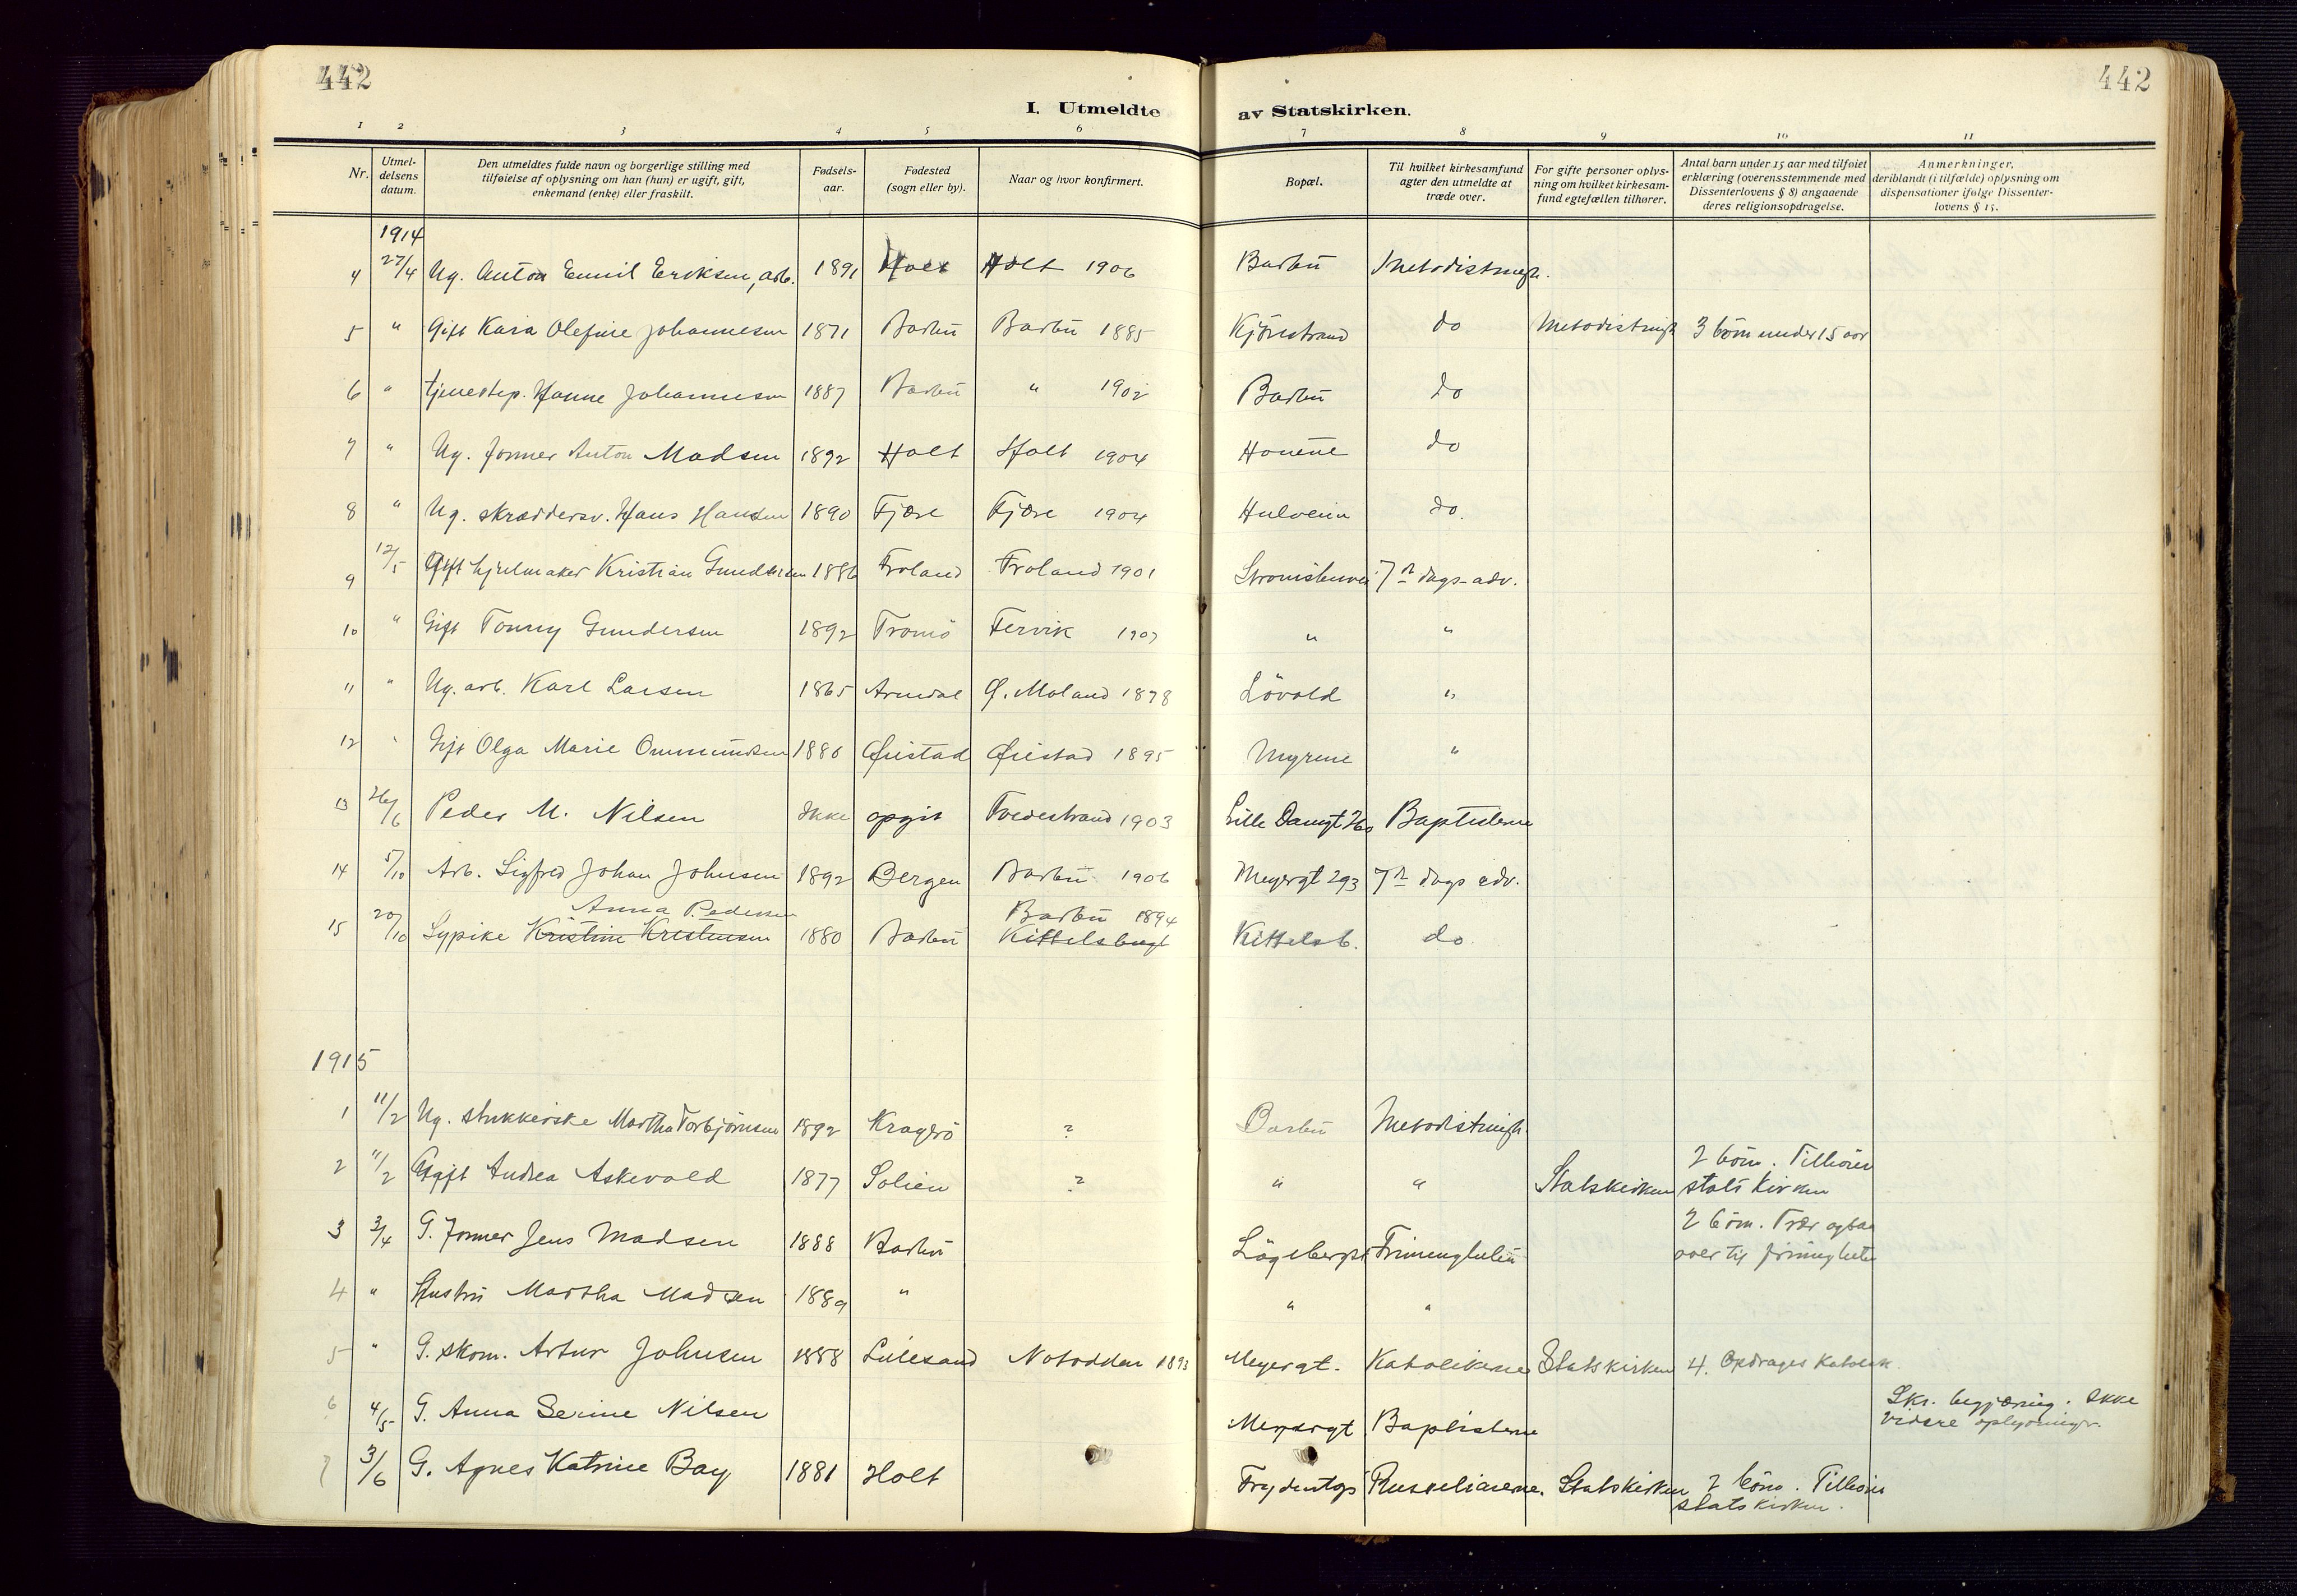 442
442
I. Utmeldte av Statskirken.
1 2 3 4 5 6 7 8 9 10 11
Nr.
Utmel-
delsens
datum.
Den utmeldtes fulde navn og borgerlige stilling med
tilføielse af oplysning om han (hun) er ugift, gift,
enkemand (enke) eller fraskilt.
Fødsels-
aar.
Fødested
(sogn eller by).
Naar og hvor konfirmert.
Bopæl.
Til hvilket kirkesamfund
agter den utmeldte at
træde over.
For gifte personer oplys-
ning om hvilket kirkesam-
fund egtefællen tilhører.
Antal barn under 15 aar med tilføiet
erklæring (overensstemmende med
Dissenterlovens § 8) angaaende
deres religionsopdragelse.
Anmerkninger,
deriblandt (i tilfælde) oplysning om
dispensationer ifølge Dissenter-
lovens § 15.
1914
4 27/4 Ug. Anton Emil Eriksen, arb. 1891 Holt Holt 1906 Barbu Metodistmgh.
5 " Gift Kaia Olefine Johannesen 1871 Barbu Barbu 1885 do Metodistmgh 3 börn under 15 aar
6 " tjenestep. Hanne Johannesen 1887 Barbu " 1902 Barbu do
7 " Ug. former Anton Madsen 1892 Holt Holt 1904 do
8 " Ug. skræddersv. Hans Hansen 1890 Fjære Fjære 1904 do.
9 12/5 Gift hjulmaker Kristian Gundersen 1886 Froland Froland 1901 7n dags-adv.
10 " Gift Tonny Gundersen 1892 Tromö Fervik 1907 " "
11 " Ug. arb. Karl Larsen 1865 Arendal Ø. Moland 1878 Lövold "
12 " Gift Olga Marie Ommundsen 1880 Øiestad Øiestad 1895 Myrene "
13 26/6 Peder M. Nilsen Ikke opgit Tvedestrand 1903 Lille Baptisterne
14 5/10 Arb. Sigfred Johan Johnsen 1892 Bergen Barbu 1906 Meyergt 293 7n dags adv.
Anna Pedersen Barbu 1894
15 20/10 Sypike Kristine Kristensen 1880 Barbu Kittelsbugt Kittelsb. do
1915
1 11/2 Ug. strikkerske Martha Torbjörnsen 1892 Kragerö ? Barbu Metodistmgh.
2 börn. Tilhörer
2 11/2 Gift Andrea Askevold 1877 ? " " Statskirken stats kirken
2 börn. Trær ogsaa
3 3/4 G. Former Jens Madsen 1888 Barbu Frimenigheten over til frimenigheten
4 " Hustru Martha Madsen 1889 " " "
5 " G. skom. Artur Johnsen 1888 Lillesand Notodden 1893 Meyergt. Katolikerne Statskirken 4. Opdrages katolsk.
Skr. begjæring. Ikke
videre oplysninger.
6 4/5 G. Anna Serine Nilsen Meyergt Baptisterne
7 3/6 G. Agnes Katrine Bay 1881 Holt Russelianerne. Statskirken 2 börn. Tilhörer
statskirken.